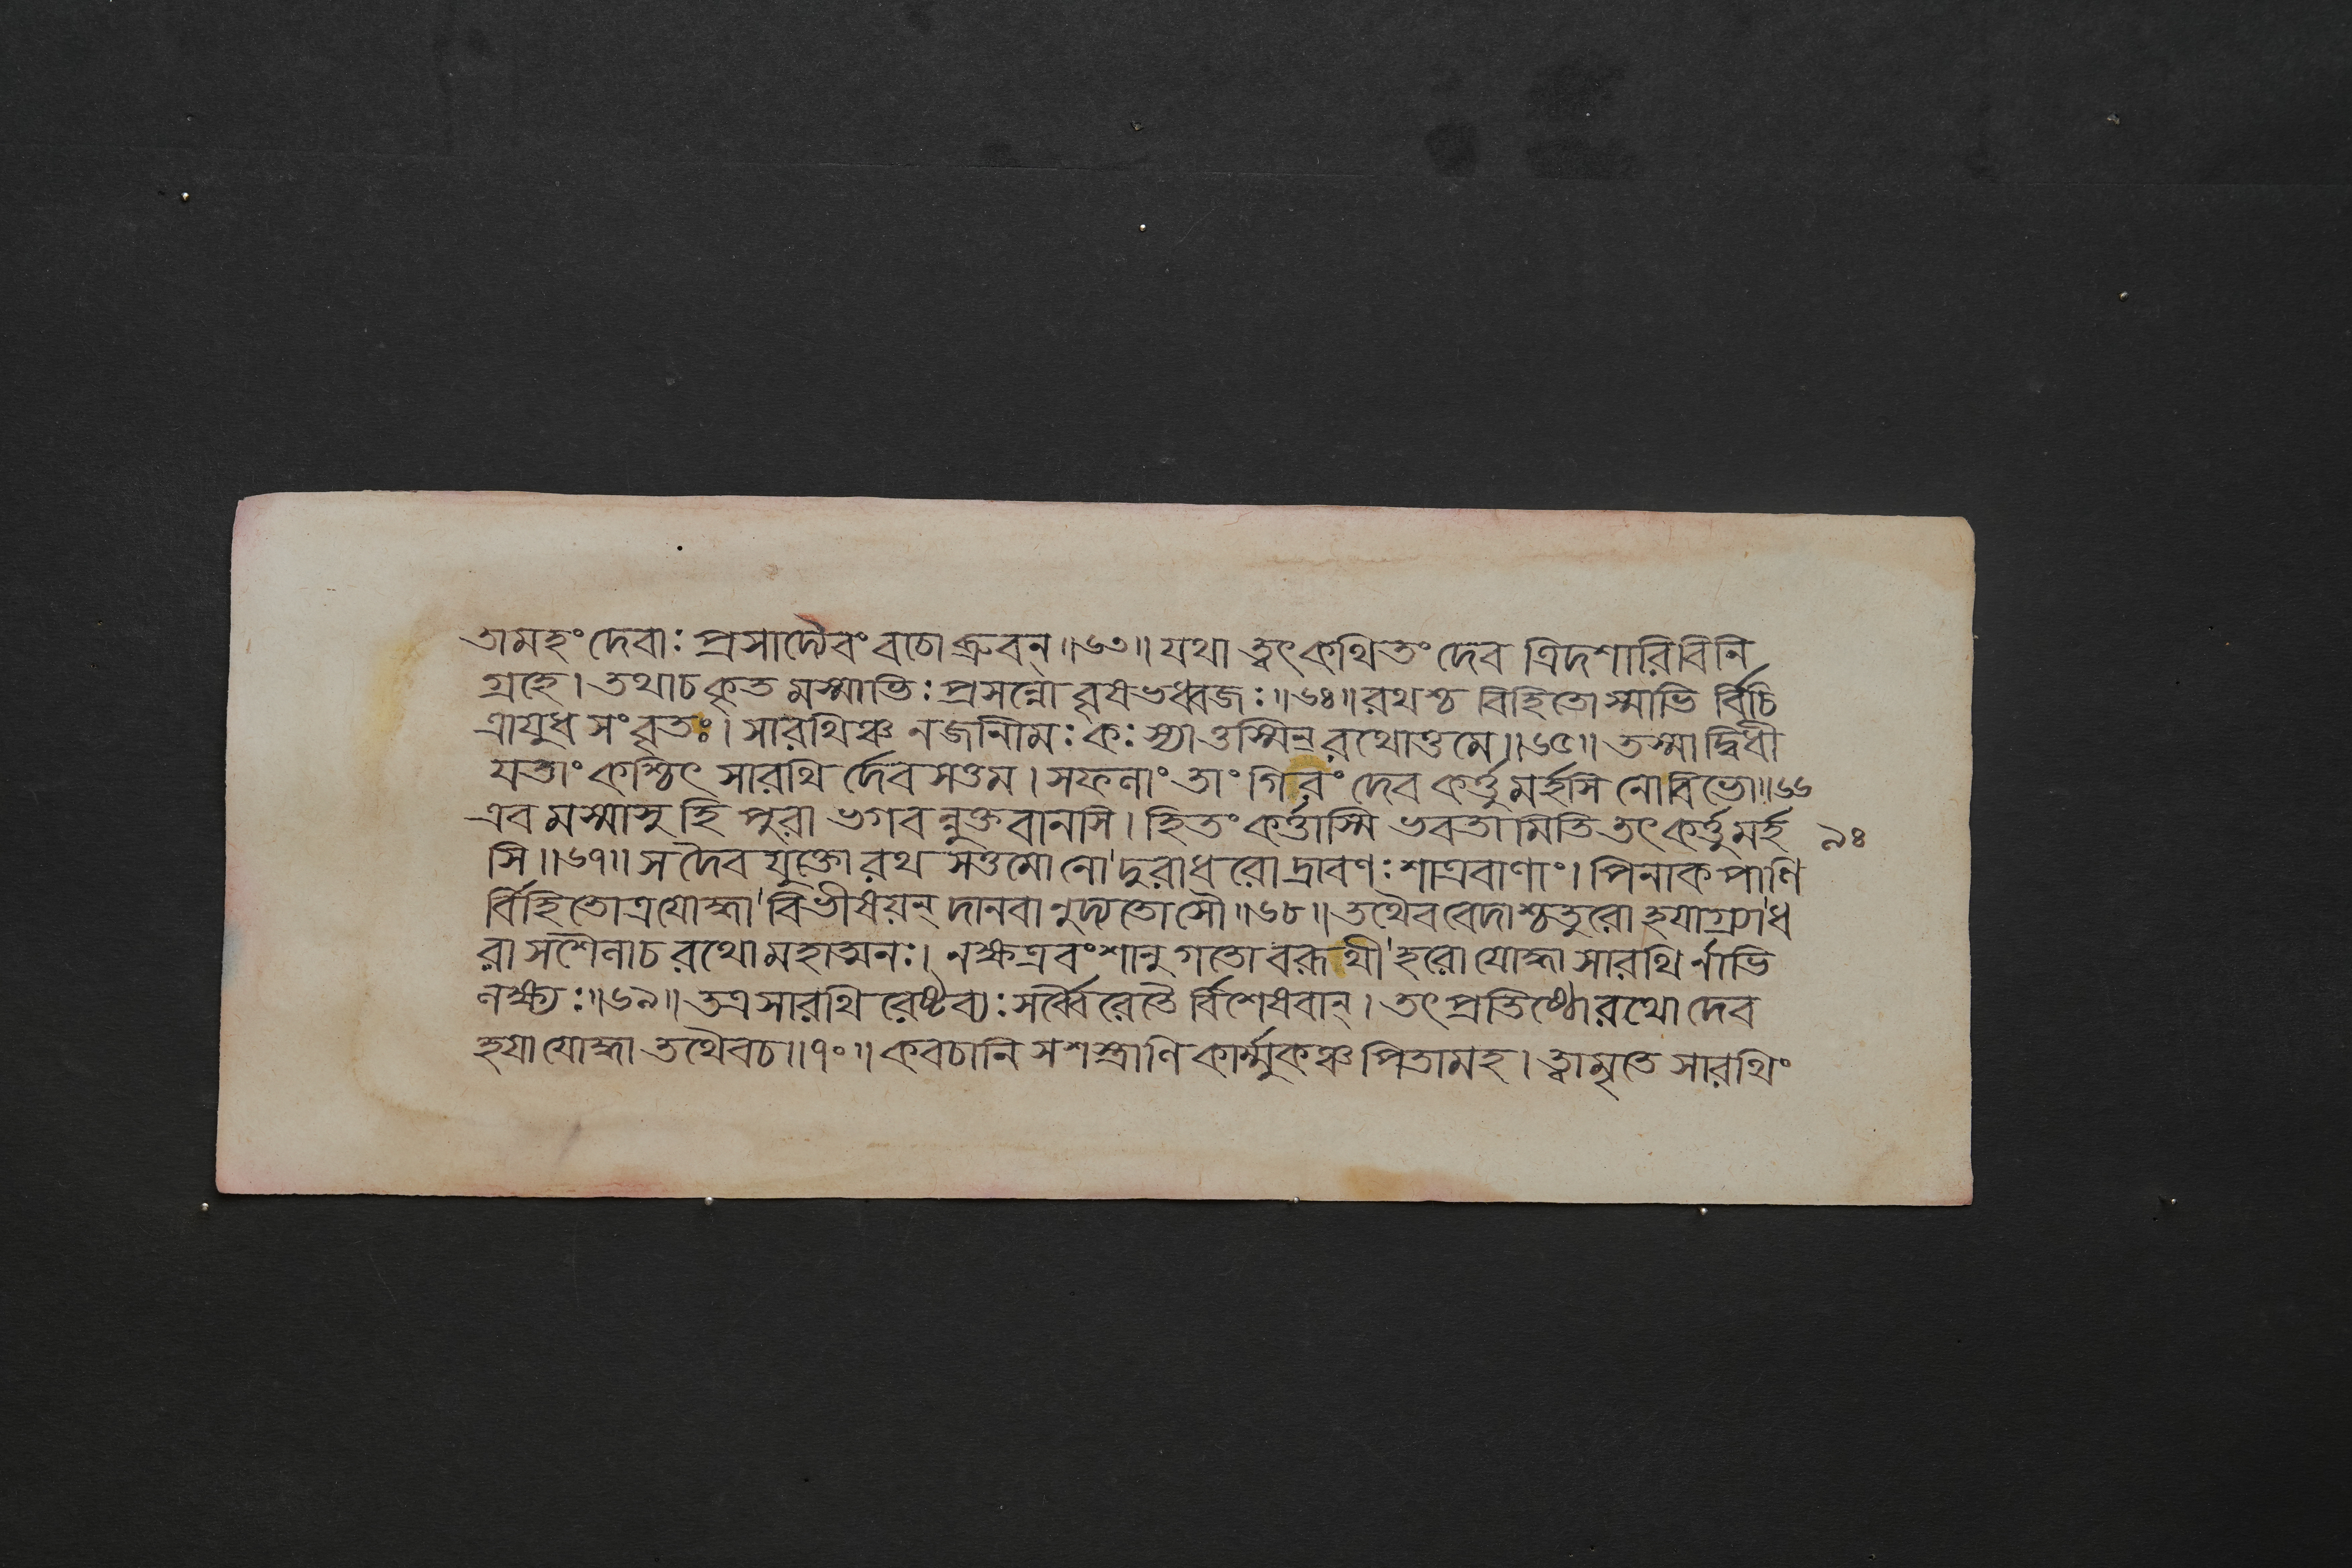 তামহং দেবাঃ প্রসাদ্যৈবং বচো ব্রুবন্॥৬৩॥ যথা ত্বৎকথিতং দেব ত্রিদশারিবিনি
গ্রহে। তথাচ কৃত মস্মাভিঃ প্রসন্নো বৃষভধ্বজঃ॥৬৪॥ রথশ্চ বিহিতোস্মাভি র্বিচি
ত্রায়ুধ সংবৃতঃ। সারথিঞ্চ নজানিমঃ কঃ স্যাত্তস্মিন্রথোত্তমে॥৬৫॥ তস্মাদ্বিধী
যতাং কশ্চিৎ সারথি র্দেব সত্তম। সফলাং তাং গিরং দেব কর্ত্তুমর্হসি নোবিভো॥৬৬
এব মস্মাসু হি পুরা ভগবন্নুক্তবানসি। হিতং কর্ত্তাস্মি ভবতামিতি তৎ কর্ত্তুমর্হ ৯৪
সি॥৬৭॥ স দৈব যুক্তো রথ সত্তমো নো দুরাধরো দ্রাবণঃ শাত্রবাণাং। পিনাকপাণি
র্বিহিতোত্রযোদ্ধা বিভীষয়ন্ দানবানুদ্যতোসৌ॥৬৮॥ তথৈব বেদাশ্চতুরো হয়াগ্র্যাধ
রা সশৈলাচ রথো মহাত্মনঃ। নক্ষত্রবংশানুগতো বরূথী হরো যোদ্ধা সারথি র্নাভি
লক্ষ্যঃ॥৬৯॥ তত্র সারথি রেষ্টব্যঃ সর্ব্বৈরেতৈ র্বিশেষবান্। তৎ প্রতিষ্ঠো রথো দেব
হয়া যোদ্ধা তথৈবচ॥৭০॥ কবচানি সশস্ত্রাণি কার্ম্মুকঞ্চ পিতামহ। ত্বামৃতে সারথিং